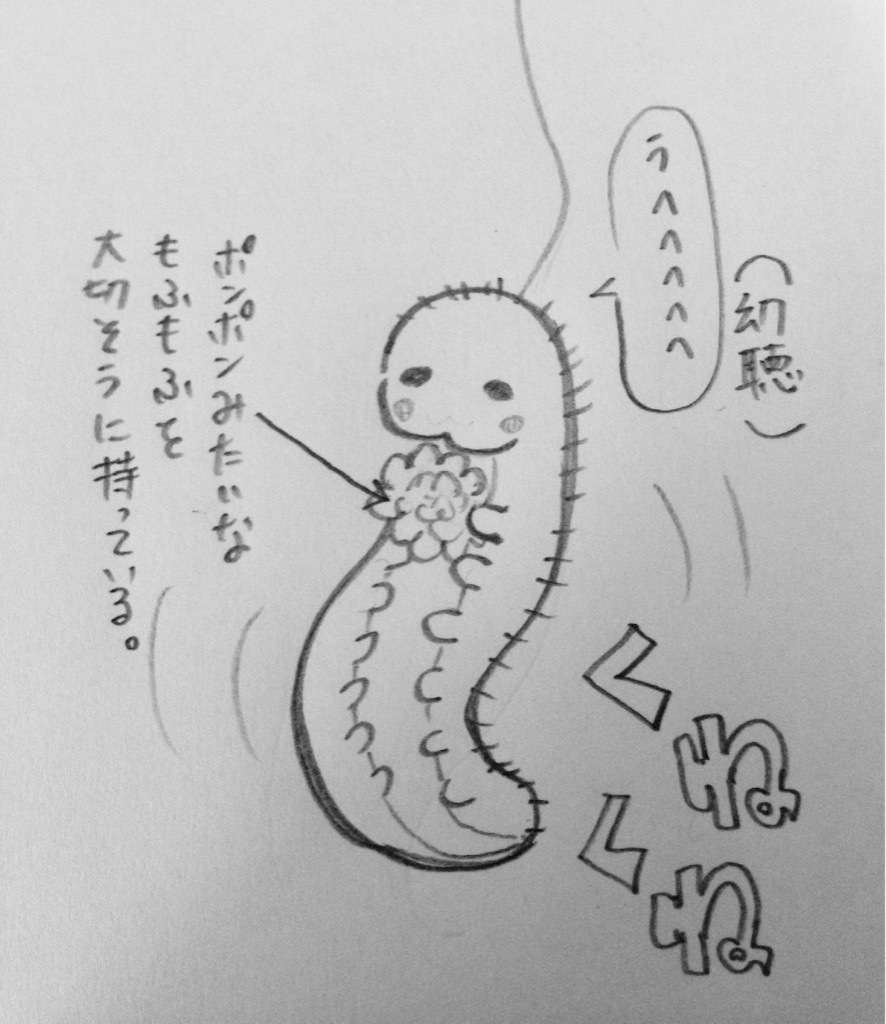 うへへへへへ
（幻聴）
ポンポンみたいな
もふもふを
大切そうに持っている。
くね
くね